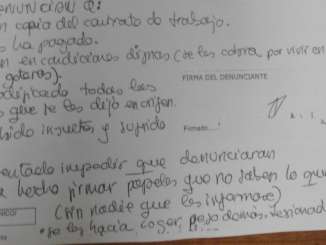 DENUNCIAN Q:
n copia del contrato de trabajo.
s ha pagado.
n en condiciones dignas (se les cobra por vivir en
goteras).
odificado todas las
s que se les dijo en origen.
bido insultos y sufrido
FIRMA DEL DENUNCIANTE
Firmado:
entado impedir que denunciaran
a hecho firmar papeles que no saben lo que
(sin nadie que les informase)
*se les hacía coger peso demás, lesionad